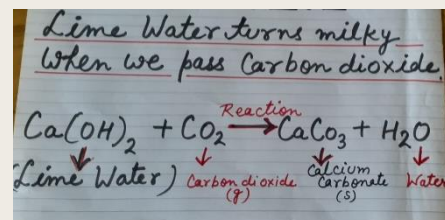 Lime Water turns milky
When we pass Carbon dioxide.
Reaction
Ca(OH)₂ + CO₂ → CaCo₃ + H₂O
(Lime Water) Carbon dioxide (g) Calcium Carbonate (s) Water